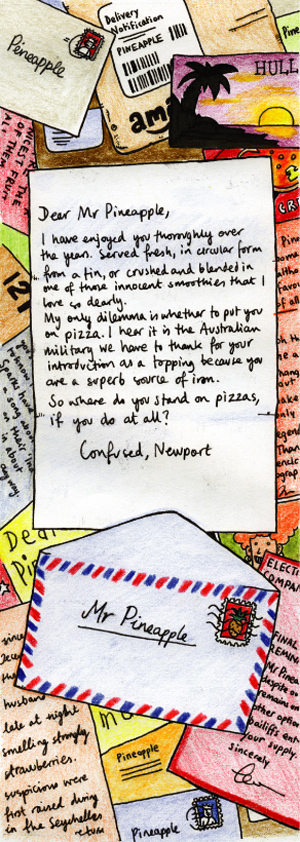 Pineapple
Delivery
Notification
PINEAPPLE
ama
HULL
Pine
OF THE
FRUIT
AT THEM
121
Dear Mr Pineapple,
I have enjoyed you thoroughly over
the years. Served fresh, in circular form
from a tin, or crushed and blended in
one of those innocent smoothies that I
love so dearly.
My only dilemma is whether to put you
on pizza. I hear it is the Australian
military we have to thank for your
introduction as a topping because you
are a superb source of iron.
So where do you stand on pizzas,
if you do at all?
Confused, Newport
a song about
is about
anyway.
Dear
Pin
Mr Pineapple
ELECTRI
COMPAN
FINAL
REMIND
Mr Pinea
despite o
remains o
other optio
bailiffs ent
your supply
sincerely
since
husband
late at night
smelling strongly
strawberries.
suspicions were
first raised during
in the Seychelles
Pineapple
Pineapple